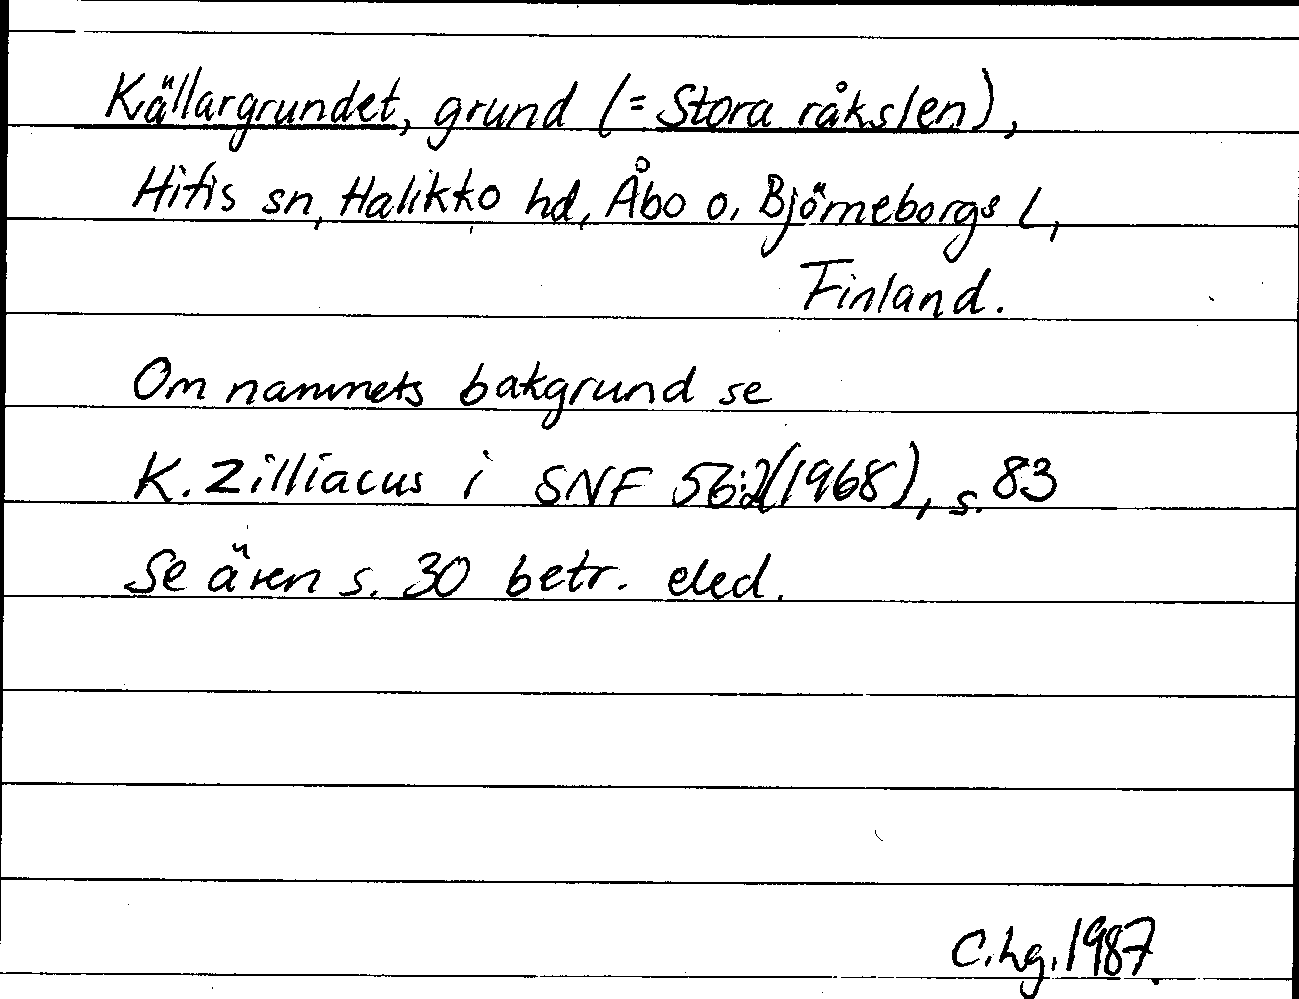 Källargrundet, grund (= Stora råkslen),
Hitis sn, Halikko hd, Åbo o. Björneborgs l,
Finland.
Om namnets bakgrund se
K. Zilliacus i SNF 56:2(1968), s. 83
Se även s. 30 betr. eled.
C.hg. 1987.